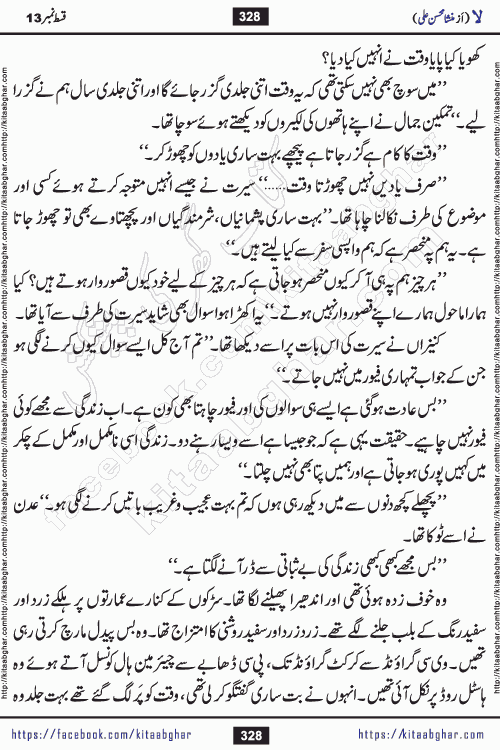 لا (از منشا محسن علی)
328
قسط نمبر 13
کھویا کیا پایا وقت نے انہیں کیا دیا؟
’’میں سوچ بھی نہیں سکتی تھی کہ یہ وقت اتنی جلدی گزر جائے گا اور اتنی جلدی سال ہم نے گزار
لیے۔‘‘ تمکین جمال نے اپنے ہاتھوں کی لکیروں کو دیکھتے ہوئے سوچا تھا۔
’’وقت کا کام ہے گزر جاتا ہے پیچھے بہت ساری یادوں کو چھوڑ کر۔‘‘
’’صرف یادیں نہیں چھوڑتا وقت......‘‘ سیرت نے جیسے انہیں متوجہ کرتے ہوئے کسی اور
موضوع کی طرف نکالنا چاہا تھا۔’’بہت ساری پشمانیاں، شرمندگیاں اور پچھتاوے بھی تو چھوڑ جاتا
ہے۔ یہ ہم پہ منحصر ہے کہ ہم واپسی سفر سے کیا لیتے ہیں۔‘‘
’’ہر چیز ہم پہ ہی آ کر کیوں منحصر ہو جاتی ہے کہ ہر چیز کے لیے خود کیوں قصوروار ہوتے ہیں؟ کیا
ہمارا ماحول ہمارے اپنے قصوروار نہیں ہوتے۔‘‘ یہ اکھڑا ہوا سوال بھی شاید سیرت کی طرف سے آیا تھا۔
کنیزاں نے سیرت کی اس بات پر اسے دیکھا تھا۔ ’’تم آج کل ایسے سوال کیوں کرنے لگی ہو
جن کے جواب تمہاری فیور میں نہیں جاتے۔‘‘
’’بس عادت ہو گئی ہے ایسے ہی سوالوں کی اور فیور چاہتا بھی کون ہے۔ اب زندگی سے مجھے کوئی
فیور نہیں چاہیے۔ حقیقت یہی ہے کہ جو جیسا ہے اسے ویسا رہنے دو۔ زندگی اسی نامکمل اور مکمل کے چکر
میں کہیں پوری ہو جاتی ہے اور ہمیں پتا بھی نہیں چلتا۔‘‘
’’پچھلے کچھ دنوں سے میں دیکھ رہی ہوں کہ تم بہت عجیب و غریب باتیں کرنے لگی ہو۔‘‘ عدن
نے اسے ٹوکا تھا۔
’’بس مجھے کبھی کبھی زندگی کی بے ثباتی سے ڈر آنے لگتا ہے۔‘‘
وہ خوف زدہ ہوئی تھی اور اندھیرا پھیلنے لگا تھا۔ سڑکوں کے کنارے عمارتوں پر ہلکے زرد اور
سفید رنگ کے بلب جلنے لگے تھے۔ زرد زرد اور سفید روشنی کا امتزاج تھا۔ وہ بس پیدل مارچ کرتی رہی
تھیں۔ وی سی گراؤنڈ سے کرکٹ گراؤنڈ تک، پی سی ڈھابے سے چیئرمین ہال کونسل آتے ہوئے وہ
ہاسٹل روڈ پر نکل آئی تھیں۔ انہوں نے بہت ساری گفتگو کر لی تھی، وقت کو پر لگ گئے تھے بہت جلد وہ
https://facebook.com/kitaabghar
328
https://kitaabghar.com
http://kitaabghar.com
facebook.com/kitaabghar
kitaabghar.com